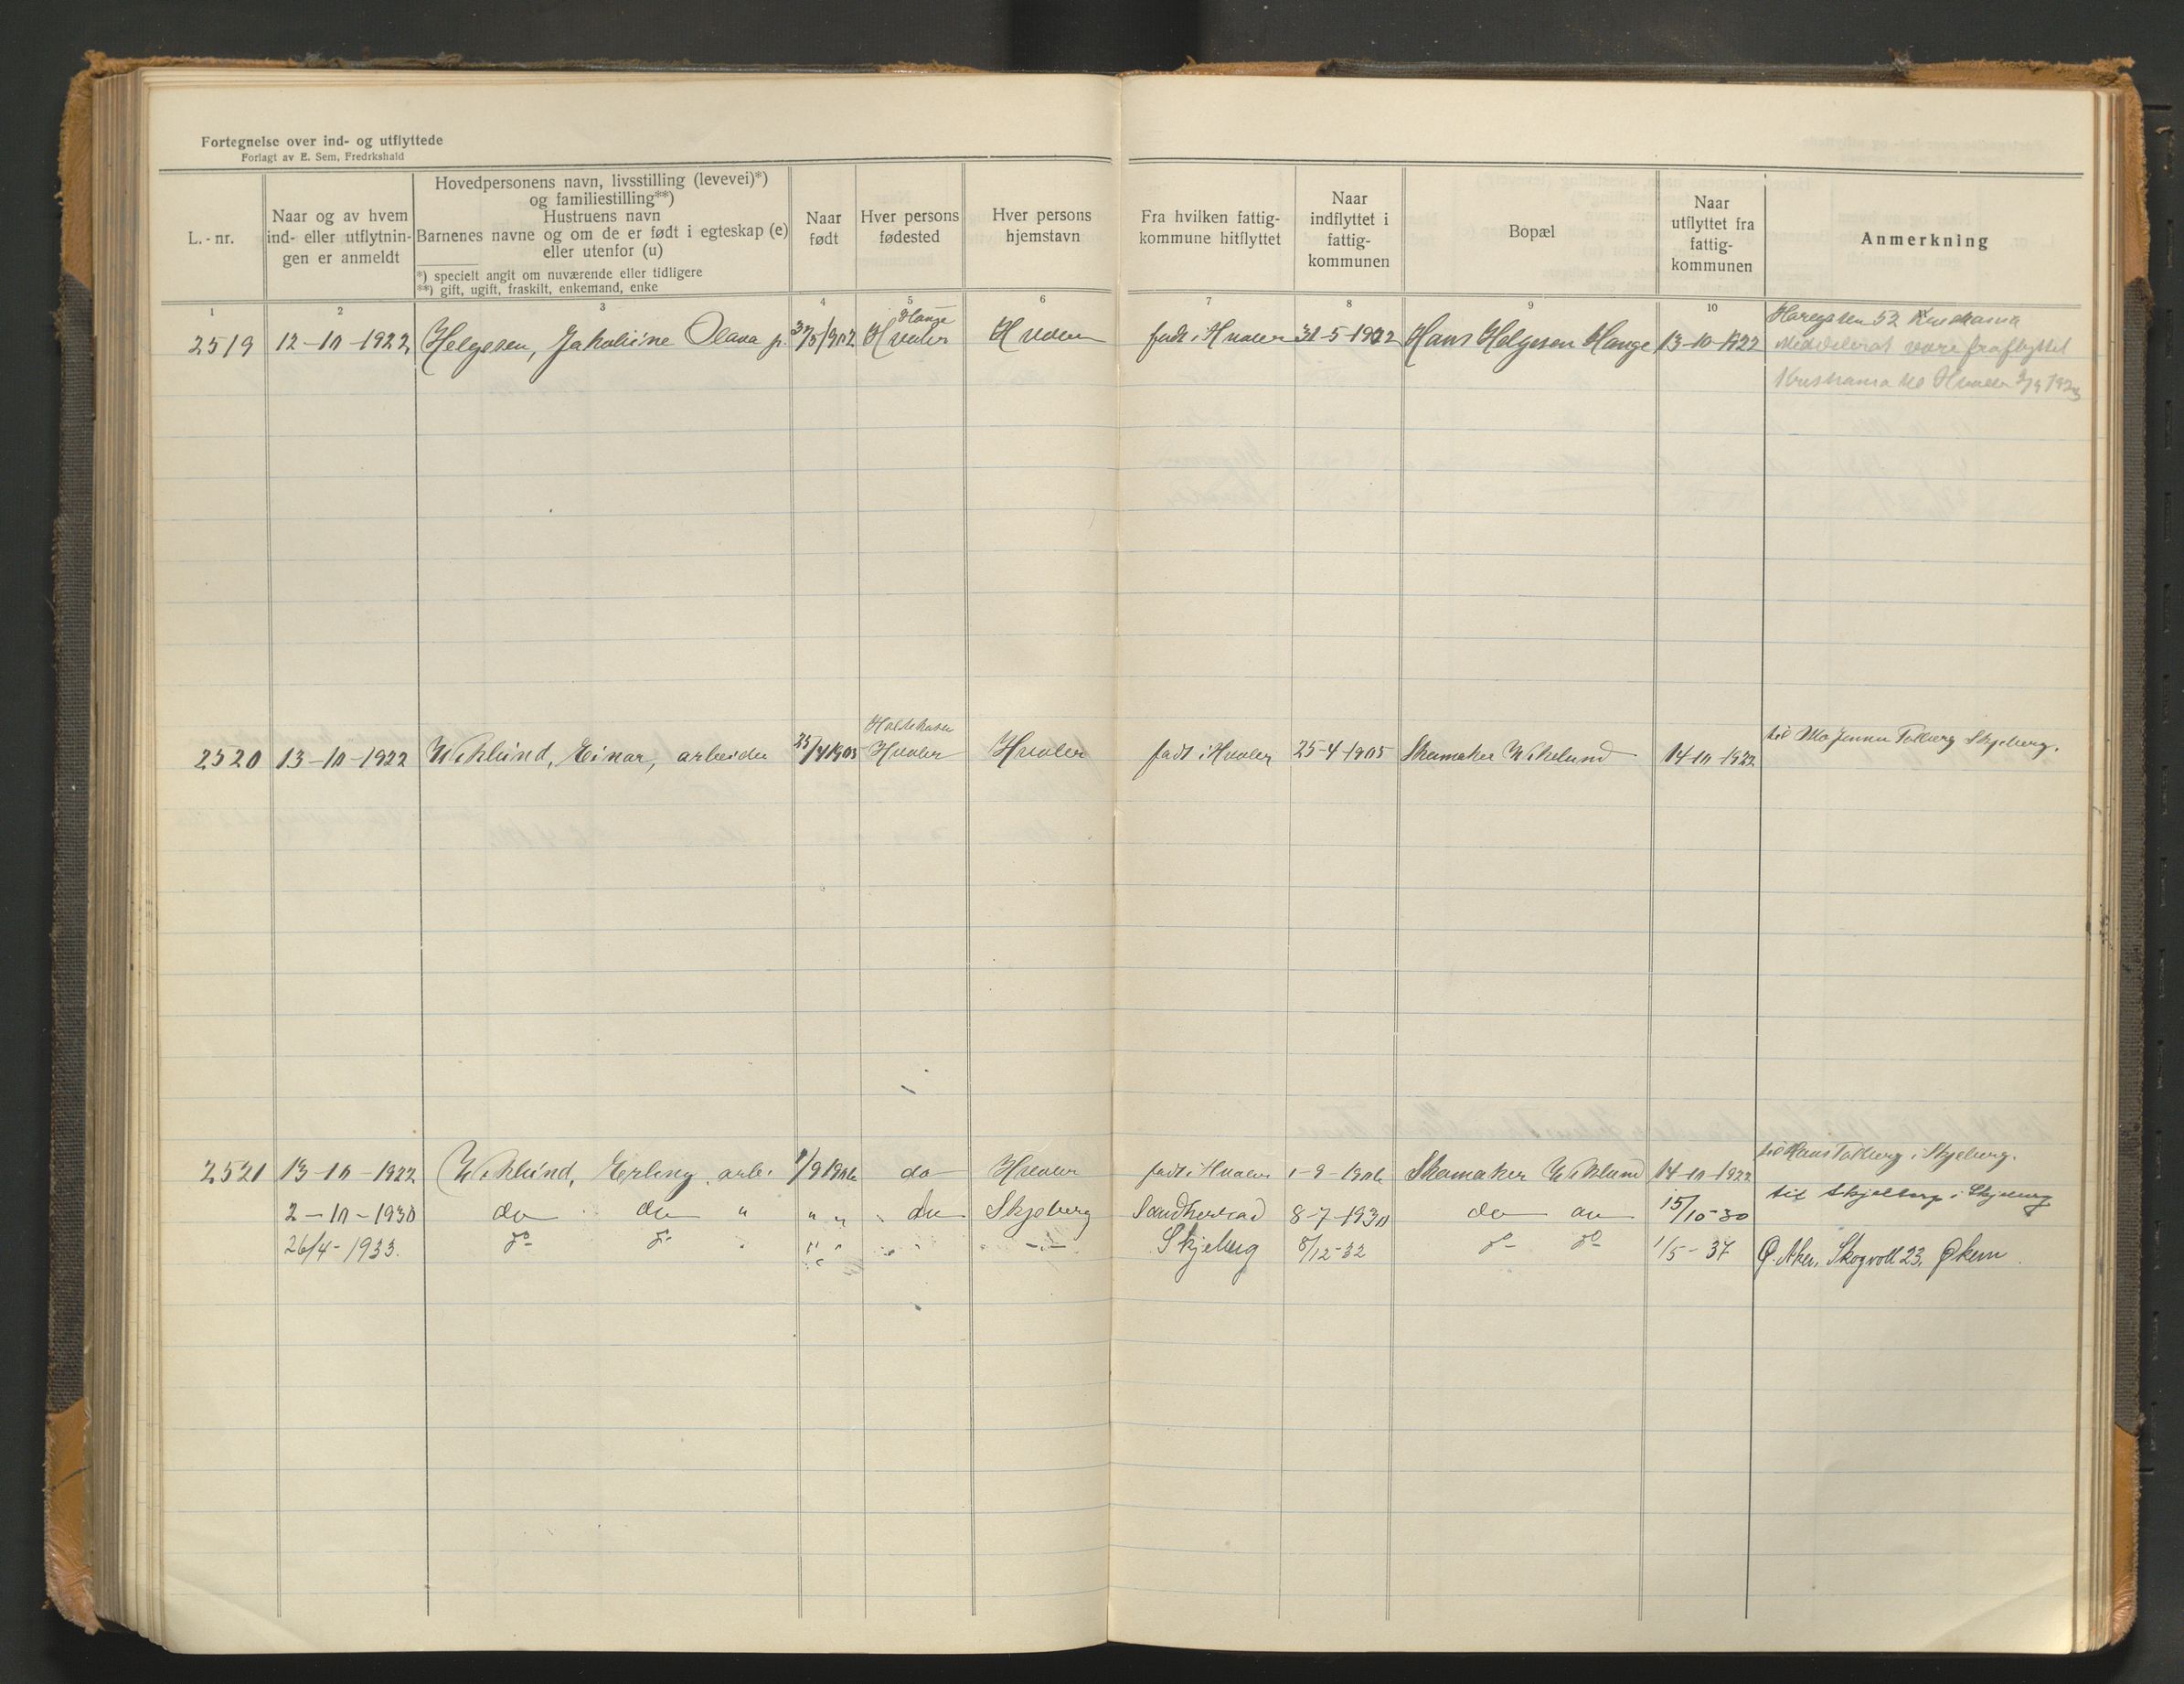 Fortegnelse over ind- og utflyttede
Forlagt av E. Sem, Fredrkshald
L.-nr.
Naar og av hvem
ind- eller utflytnin-
gen er anmeldt
Hovedpersonens navn, livsstilling (levevei)*)
og familiestilling**)
Hustruens navn
Barnenes navne og om de er født i egteskap (e)
eller utenfor (u)
*) specielt angit om nuværende eller tidligere
**) gift, ugift, fraskilt, enkemand, enke
Naar
født
Hver persons
fødested
Hver persons
hjemstavn
Fra hvilken fattig-
kommune hitflyttet
Naar
indflyttet i
fattig-
kommunen
Bopæl
Naar
utflyttet fra
fattig-
kommunen
Anmerkning
1 2 3 4 5 6 7 8 9 10
Hauge
2519 12-10-1922 Helgesen, Jakobine Olava p. 31/5 1902 Hvaler Hvaler født i Hvaler 31-5-1902 Hans Helgesen Hauge 13-10-1922
52 Kristiania
Meddelerat være fraflyttet
Kristiania til Hvaler
2520 13-10-1922 Wiklund, Einar, arbeider 25/4 1905 Hvaler Hvaler født i Hvaler 25-4-1905 Skomaker Wiklund 14-10-1922
Skjeberg.
2521 13-10-1922 Wiklund, Erling, arb. 1/9 1906 do Hvaler født i Hvaler 1-9-1906 Skomaker Wiklund 14-10-1922 til Hans Tolberg i Skjeberg.
2-10-1930 do do " " " do Skjeberg 8-7-1930 do do 15/10-30 til Skjeltorp i Skjeberg
26/4-1933. do do " " " -"- Skjeberg 8/12-32 do do 1/5-37 Ø. Aker, Skogvoll 23, Økern